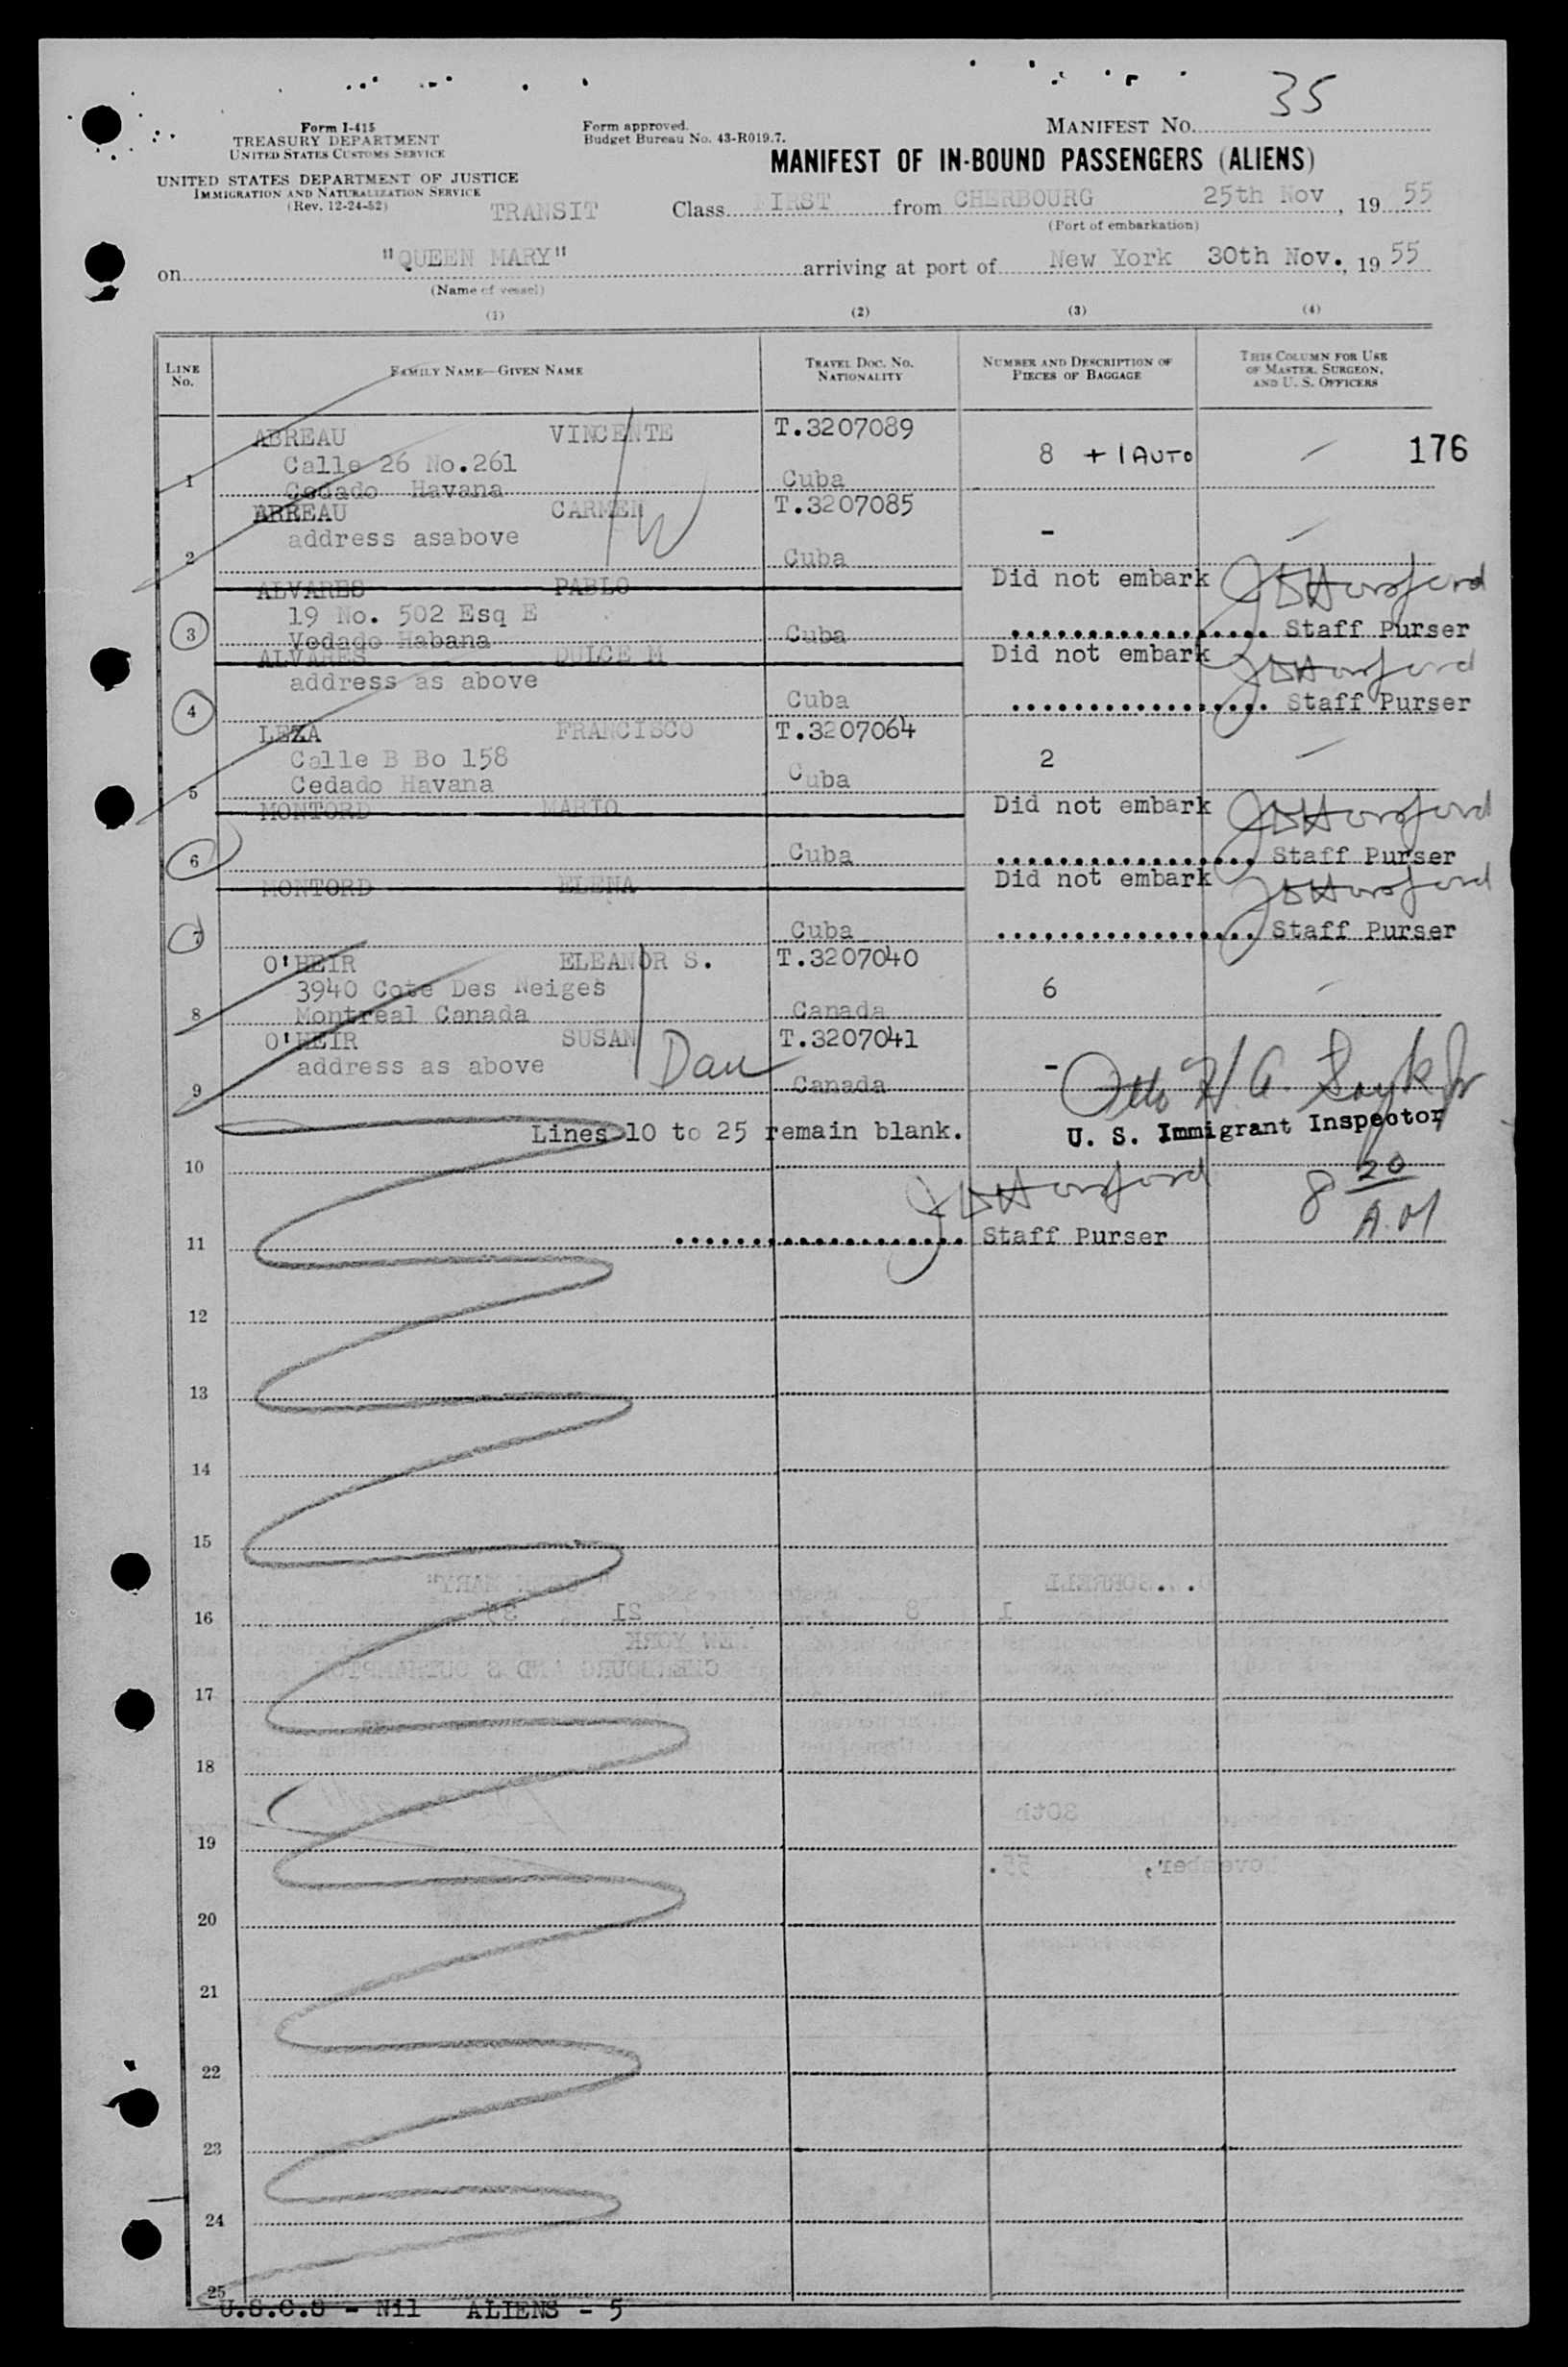 35
Form I-415
TREASURY DEPARTMENT
UNITED STATES CUSTOMS SERVICE
UNITED STATES DEPARTMENT OF JUSTICE
IMMIGRATION AND NATURALIZATION SERVICE
(Rev. 12-24-52)
Form approved.
Budget Bureau No. 43-R019.7.
MANIFEST NO.
MANIFEST OF IN-BOUND PASSENGERS (ALIENS)
TRANSIT Class IRST from CHERBOURG 25th Nov , 19 55
(Port of embarkation)
on "QUEEN MARY" arriving at port of New York 30th Nov. , 19 55
(Name of vessel)
(1) (2) (3) (4)
LINE No. FAMILY NAME—GIVEN NAME TRAVEL DOC. NO. NATIONALITY NUMBER AND DESCRIPTION OF PIECES OF BAGGAGE THIS COLUMN FOR USE OF MASTER, SURGEON, AND U. S. OFFICERS
ABREAU VINCENTE T.3207089
Calle 26 No.261 8 + 1 AUTO 176
1 Cedado Havana Cuba
ABREAU CARMEN T.3207085
address asabove -
2 W Cuba
ALVARES PABLO Did not embark
19 No. 502 Esq E
3 Vedado Habana Cuba Staff Purser
ALVARES DULCE M Did not embark
address as above
4 Cuba Staff Purser
LEZA FRANCISCO T.3207064
Calle B Bo 158 2
5 Cedado Havana Cuba
MONTORD MARIO Did not embark
6 Cuba Staff Purser
MONTORD ELENA Did not embark
7 Cuba Staff Purser
O'HEIR ELEANOR S. T.3207040
3940 Cote Des Neiges 6
8 Montreal Canada Canada
O'HEIR SUSAN T.3207041
address as above Dan -
9 Canada
Lines 10 to 25 remain blank. U. S. Immigrant Inspector
10
8 20 A.M
11 Staff Purser
12
13
14
15
16
17
18
19
20
21
22
23
24
25
U.S.C.S - Nil ALIENS - 5